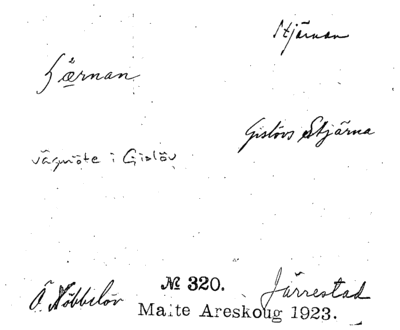 Stjärnan
Gislövs Stjärna
vägmöte i Gislöv
Ö Nöbbelöv
№ 320.
Järrestad
Malte Areskoug 1923.